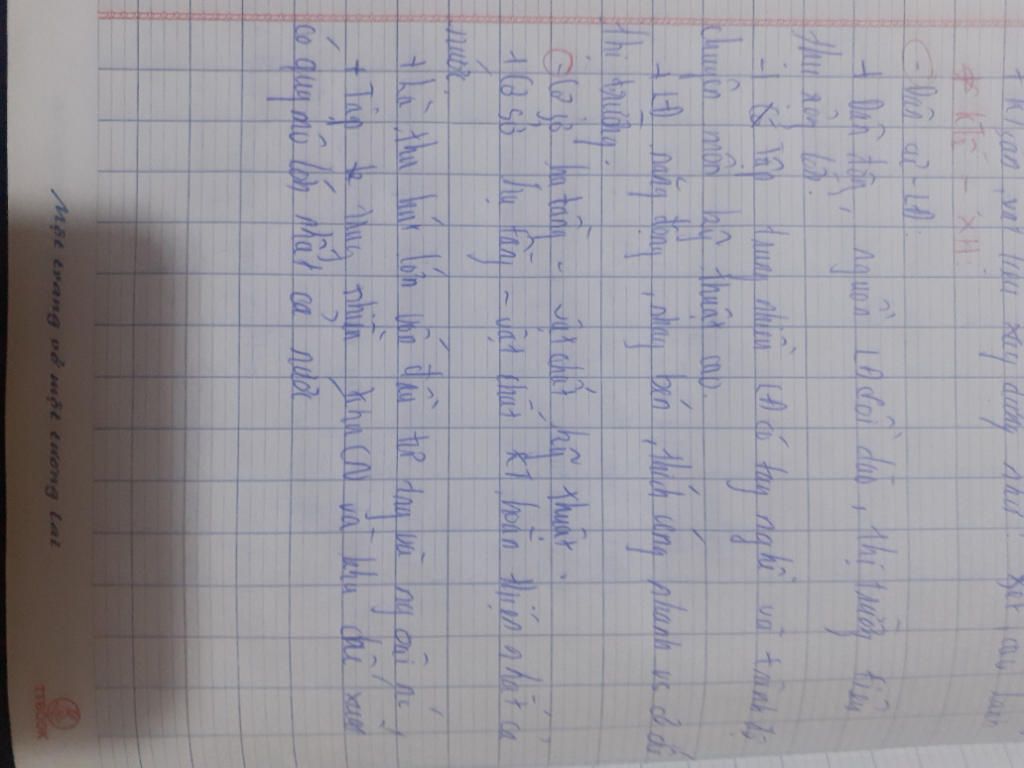 + Khoáng sản vật liệu xây dựng như: sét, cao lanh,
* KTế - XH:
- Dân cư - LĐ:
+ Dân đông, nguồn LĐ dồi dào, thị trường tiêu
thụ rộng lớn.
+ Tập trung nhiều LĐ có tay nghề và trình độ
chuyên môn kỹ thuật cao.
+ LĐ năng động, nhạy bén, thích ứng nhanh vs cơ chế
thị trường.
- Cơ sở hạ tầng - vật chất kỹ thuật.
+ Cơ sở hạ tầng - vật chất KT hoàn thiện nhất cả
nước.
+ Là, thu hút lớn vốn đầu tư trong và ngoài nc,
+ Tập trung nhiều khu CN và khu chế xuất
có quy mô lớn nhất cả nước
Một trang vở một tương lai